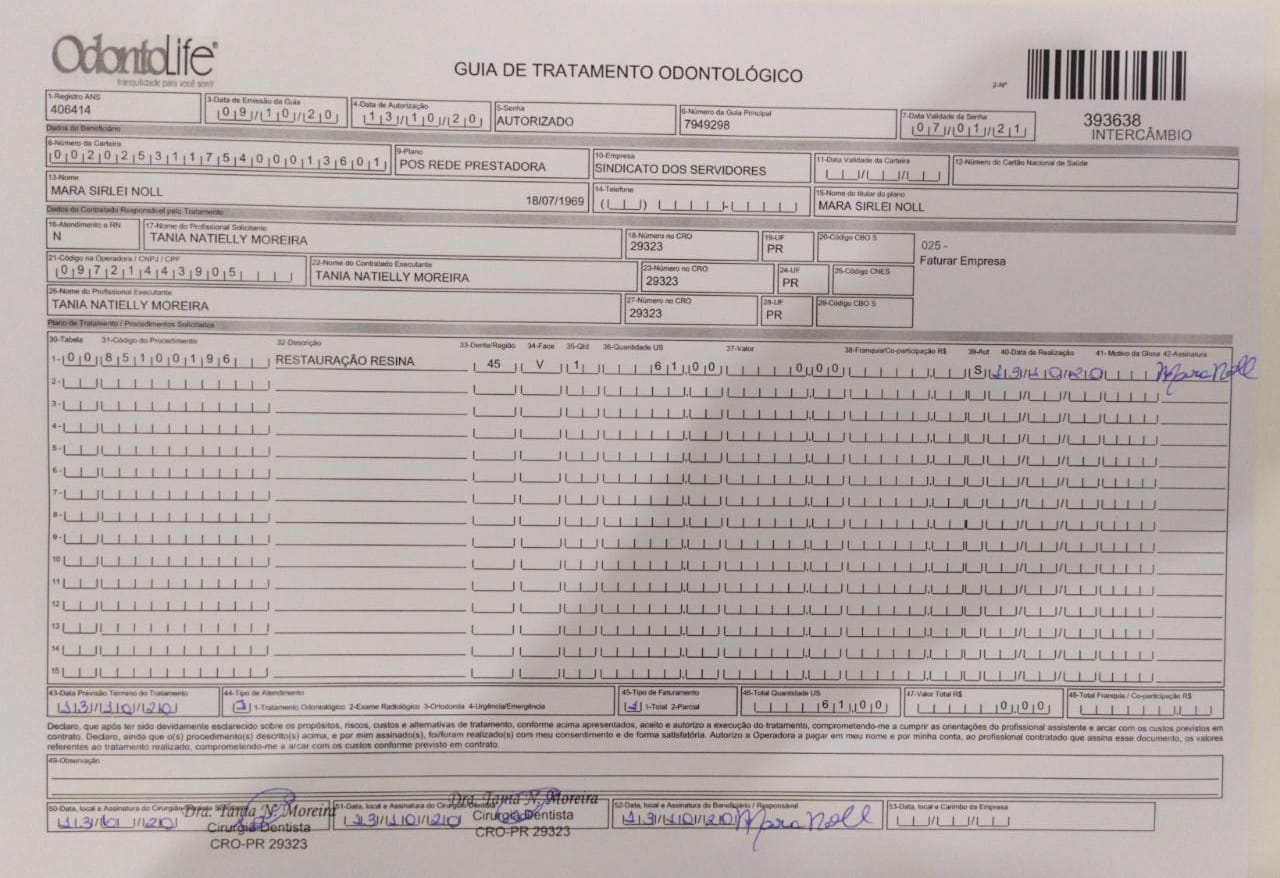 OdontoLife®
tranquilidade para você sorrir
GUIA DE TRATAMENTO ODONTOLÓGICO
2-Nº
393638
INTERCÂMBIO
1-Registro ANS
406414
3-Data de Emissão da Guia
09/10/20
4-Data de Autorização
13/10/20
5-Senha
AUTORIZADO
6-Número da Guia Principal
7949298
7-Data Validade da Senha
07/01/21
Dados do Beneficiário
8-Número da Carteira
00202531175400013601
9-Plano
POS REDE PRESTADORA
10-Empresa
SINDICATO DOS SERVIDORES
11-Data Validade da Carteira
12-Número do Cartão Nacional de Saúde
13-Nome
MARA SIRLEI NOLL 18/07/1969
14-Telefone
15-Nome do titular do plano
MARA SIRLEI NOLL
Dados do Contratado Responsável pelo Tratamento
16-Atendimento a RN
N
17-Nome do Profissional Solicitante
TANIA NATIELLY MOREIRA
18-Número no CRO
29323
19-UF
PR
20-Código CBO S
025 -
Faturar Empresa
21-Código na Operadora / CNPJ / CPF
09721443905
22-Nome do Contratado Executante
TANIA NATIELLY MOREIRA
23-Número no CRO
29323
24-UF
PR
25-Código CNES
26-Nome do Profissional Executante
TANIA NATIELLY MOREIRA
27-Número no CRO
29323
28-UF
PR
29-Código CBO S
Plano de Tratamento / Procedimentos Solicitados
30-Tabela 31-Código do Procedimento 32-Descrição 33-Dente/Região 34-Face 35-Qtd 36-Quantidade US 37-Valor 38-Franquia/Co-participação R$ 39-Aut 40-Data de Realização 41- Motivo da Glosa 42-Assinatura
1- 00 85100196 RESTAURAÇÃO RESINA 45 V 1 61,00 0,00 S 13/10/20 Mara Noll
2-
3-
4-
5-
6-
7-
8-
9-
10
11
12
13
14
15
43-Data Previsão Término do Tratamento
13/10/20
44-Tipo de Atendimento
1 1-Tratamento Odontológico 2-Exame Radiológico 3-Ortodontia 4-Urgência/Emergência
45-Tipo de Faturamento
1 1-Total 2-Parcial
46-Total Quantidade US
61,00
47-Valor Total R$
0,00
48-Total Franquia / Co-participação R$
Declaro, que após ter sido devidamente esclarecido sobre os propósitos, riscos, custos e alternativas de tratamento, conforme acima apresentados, aceito e autorizo a execução do tratamento, comprometendo-me a cumprir as orientações do profissional assistente e arcar com os custos previstos em
contrato. Declaro, ainda que o(s) procedimento(s) descrito(s) acima, e por mim assinado(s), foi/foram realizado(s) com meu consentimento e de forma satisfatória. Autorizo a Operadora a pagar em meu nome e por minha conta, ao profissional contratado que assina esse documento, os valores
referentes ao tratamento realizado, comprometendo-me a arcar com os custos conforme previsto em contrato.
49-Observação
50-Data, local e Assinatura do Cirurgião-Dentista
13/10/20
Dra. Tania N. Moreira
Cirurgiã Dentista
CRO-PR 29323
51-Data, local e Assinatura do Cirurgião-Dentista
13/10/20
Dra. Tania N. Moreira
Cirurgiã Dentista
CRO-PR 29323
52-Data, local e Assinatura do Beneficiário / Responsável
13/10/20 Mara Noll
53-Data, local e Carimbo da Empresa